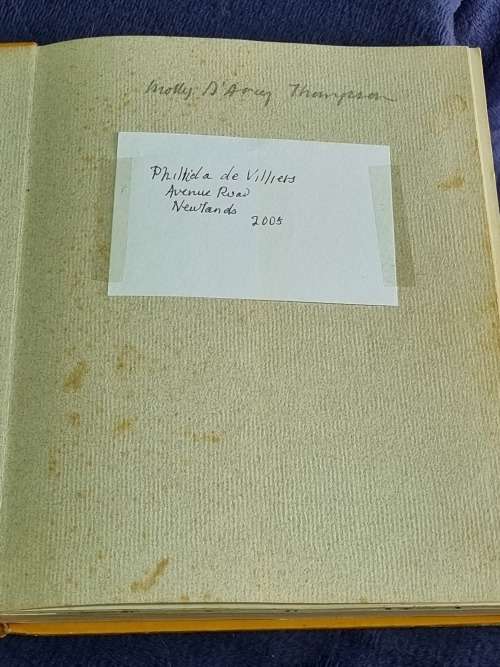 Molly D'Arcy Thompson
Phillida de Villiers
Avenue Road
Newlands
2005